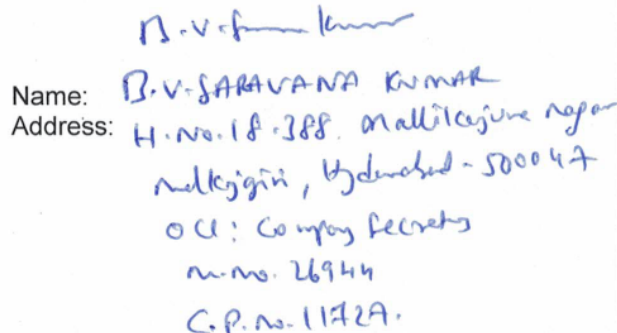 B.V. Saravana Kumar
Name: B.V. SARAVANA KUMAR
Address: H.No. 18-388. Mallikajuna nagar
Malkajgiri, Hyderabad - 500047
OCC: Company Secretary
M.No. 26944
C.P. No. 11727A.